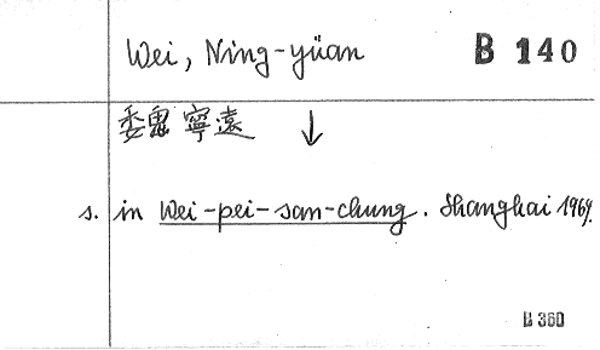 Wei, Ning-yüan B 140
魏 寧遠 ↓
s. in Wei-pei-san-chung. Shanghai 1964.
B 360